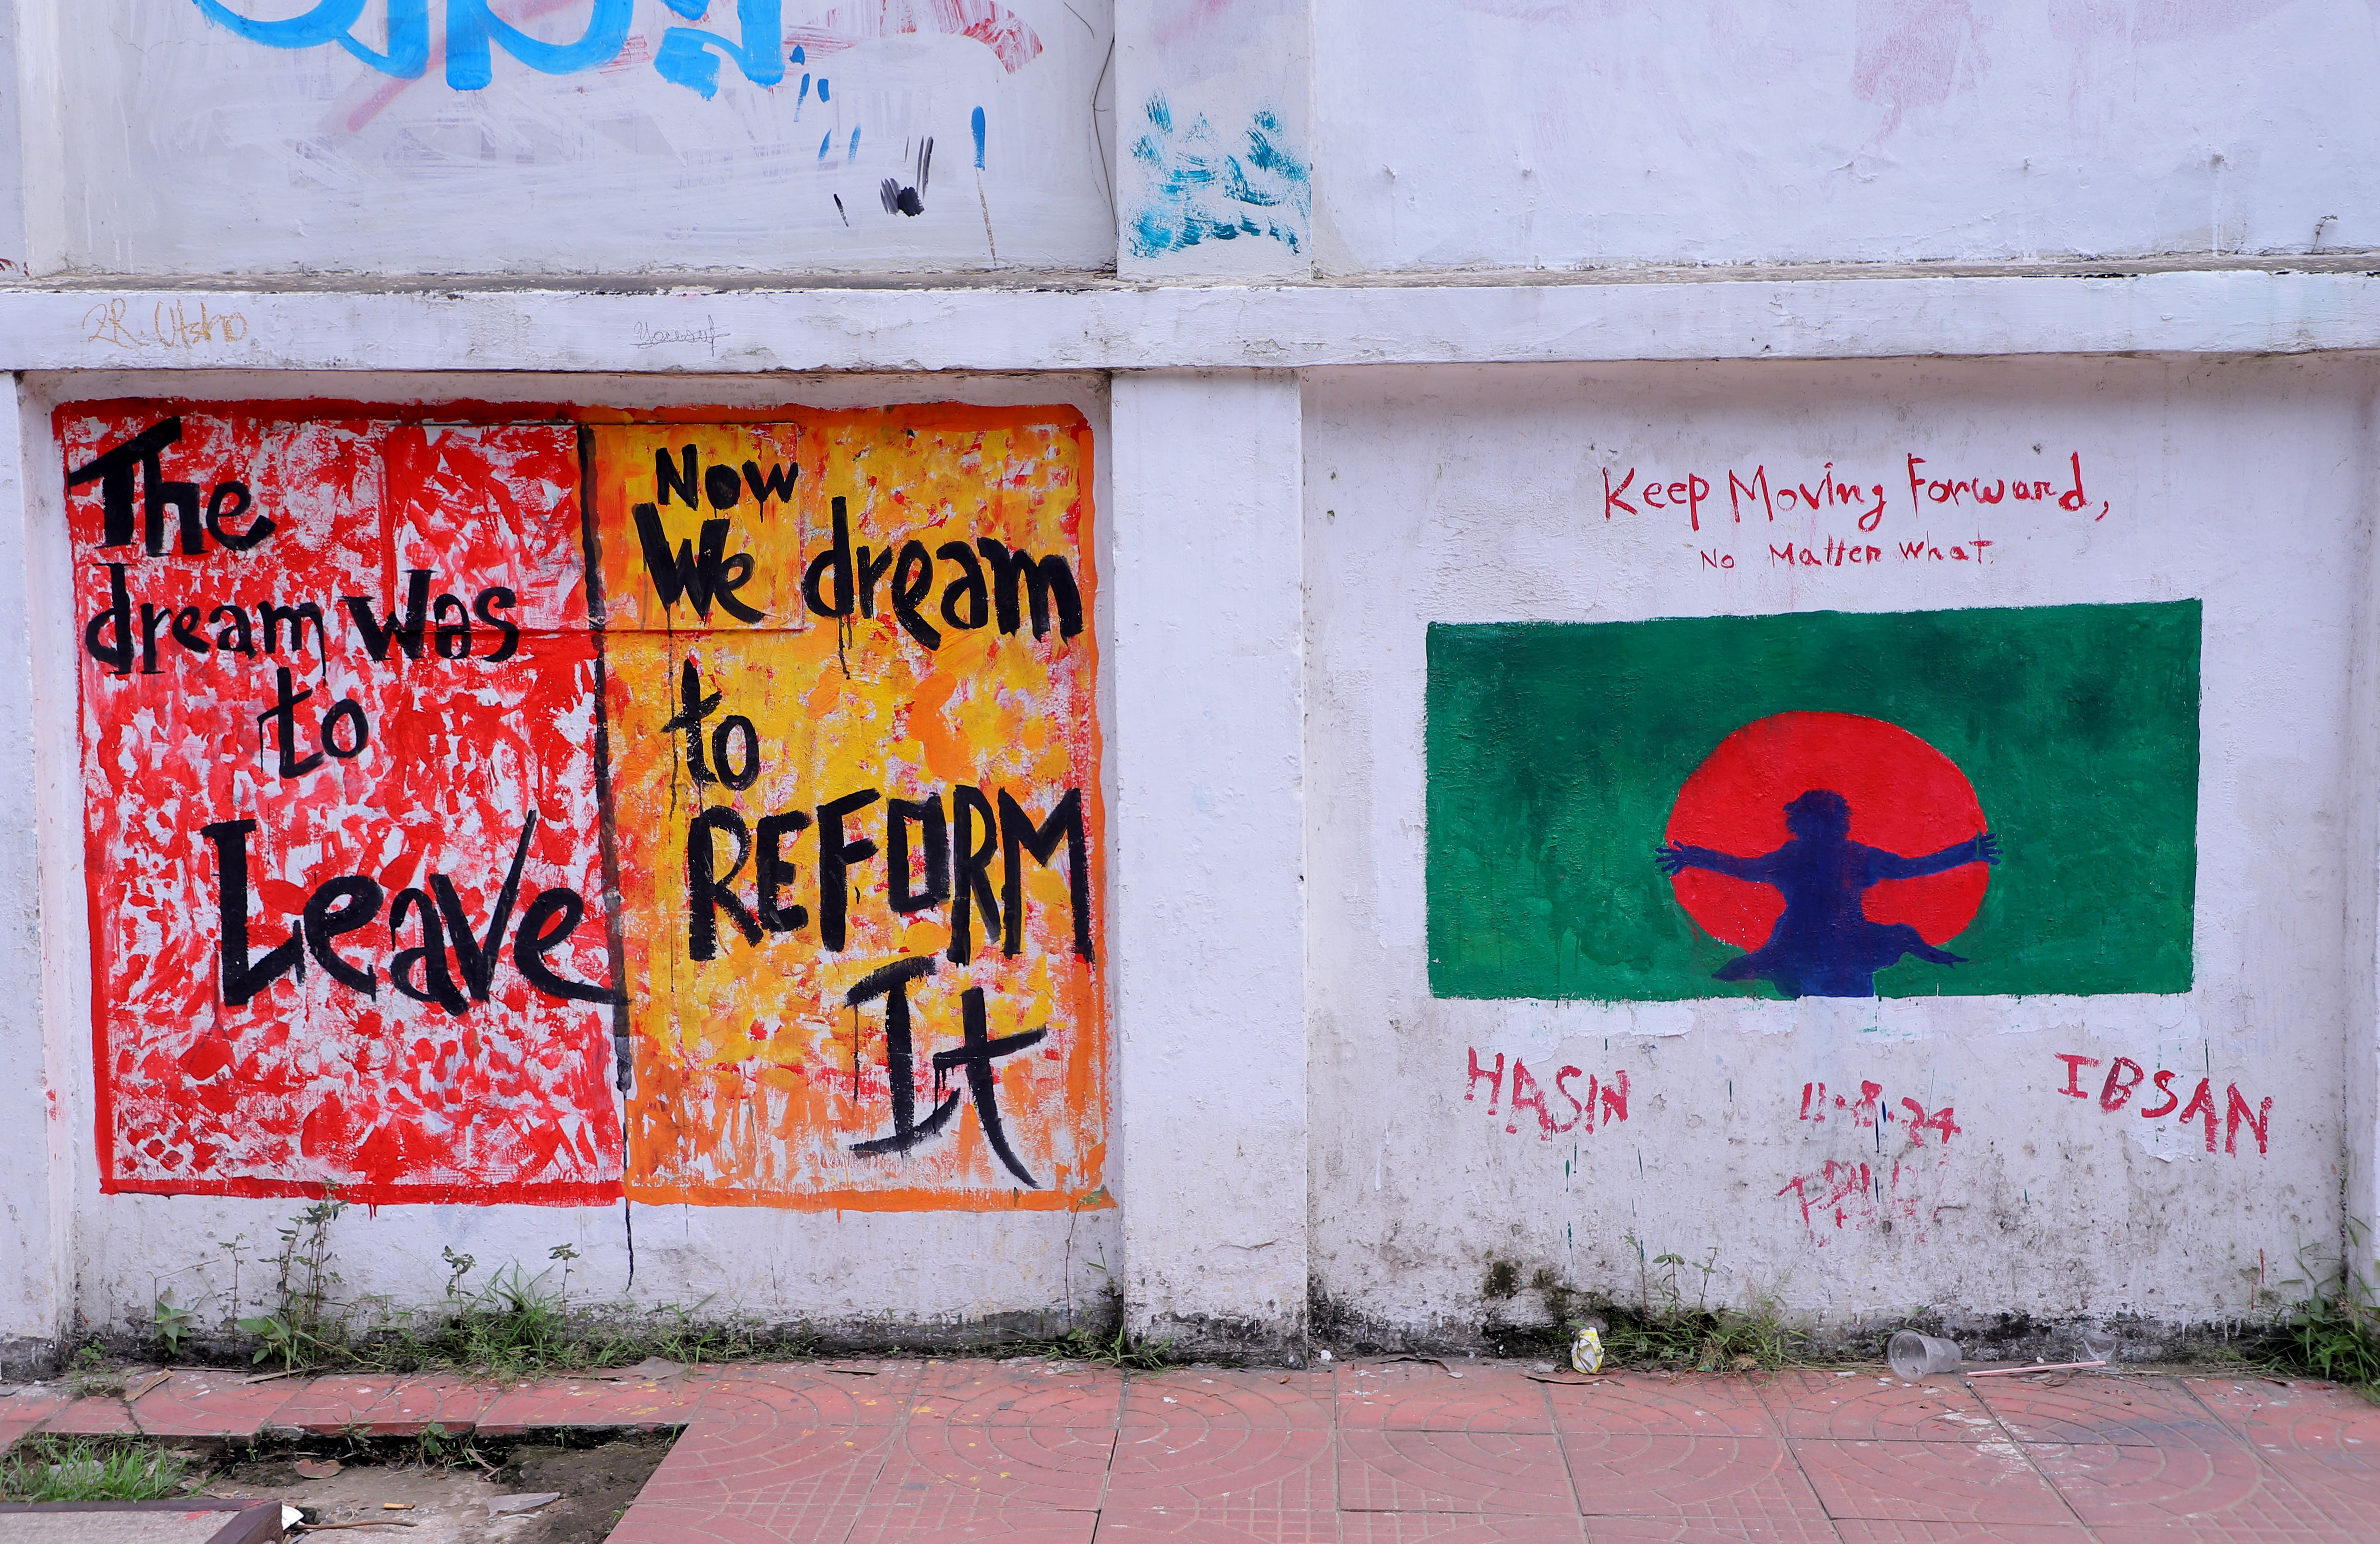 ZR. Utsho
Yousuf
The
dream was
to
Leave
Now
We dream
to
REFORM
It
Keep Moving Forward,
No Matter What.
HASIN
11.8.24
IBSAN